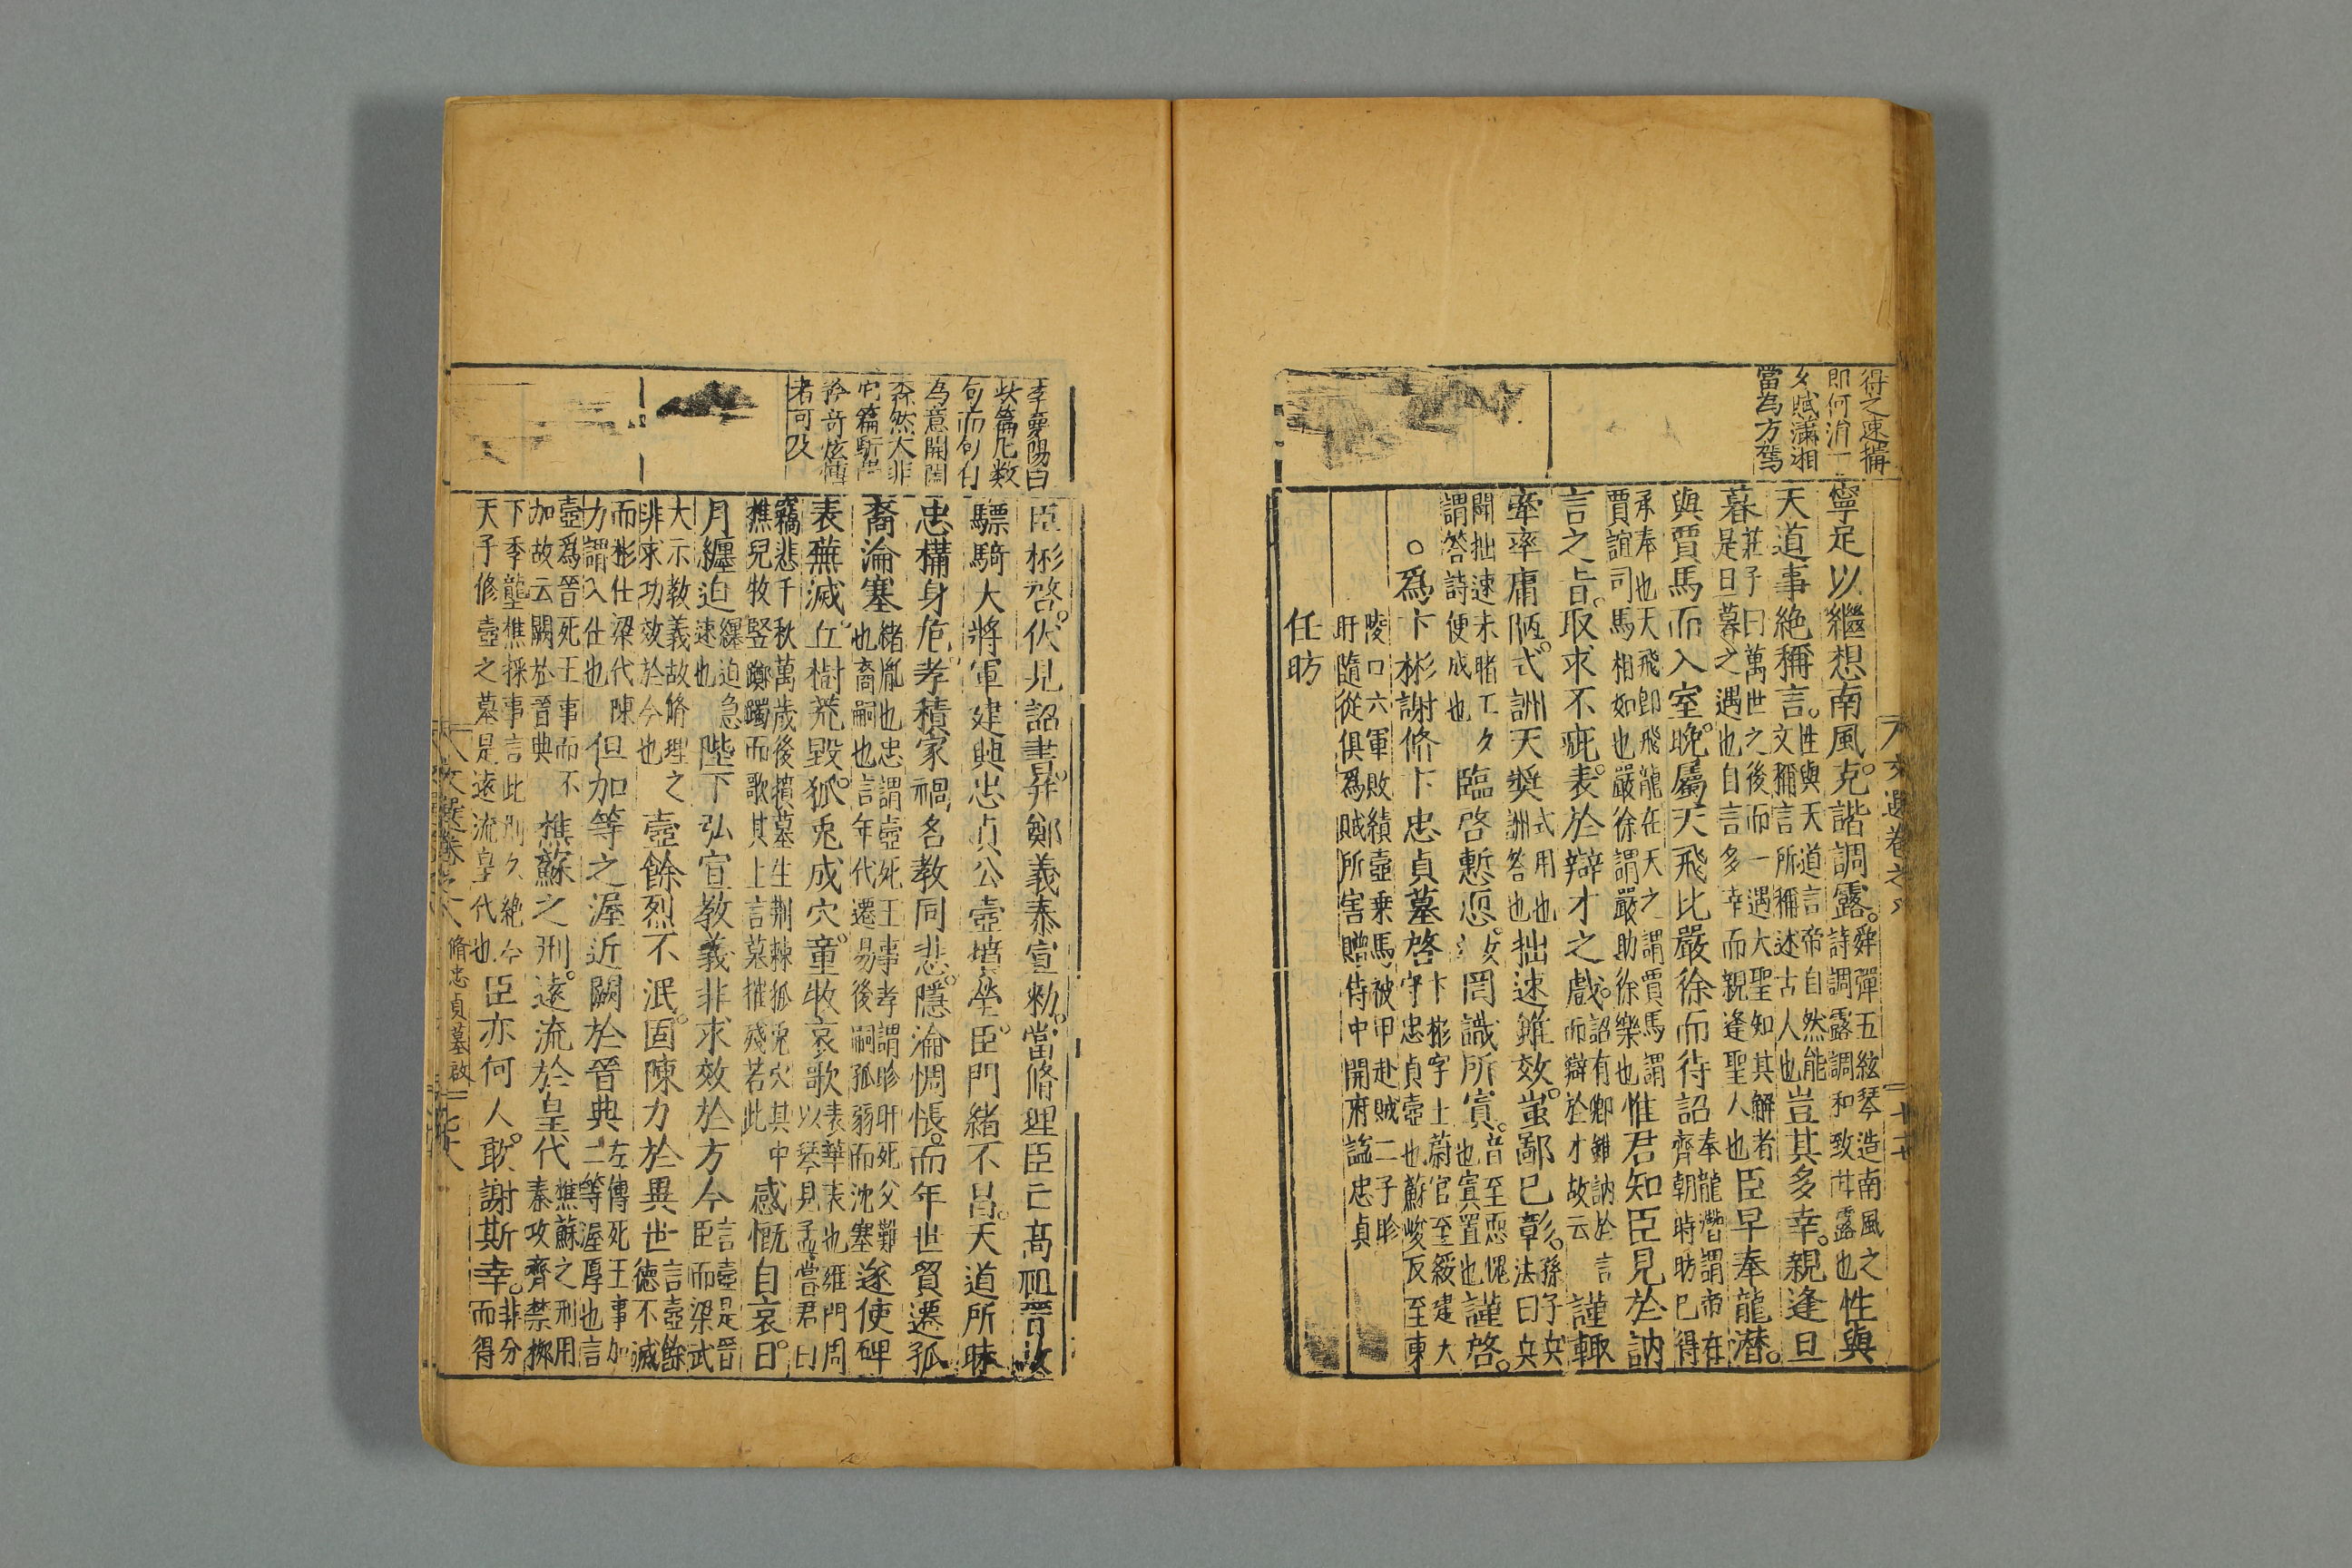 得之速搆
即何消一
夕賦滿湘
當為方駕
寧足以繼想南風克諧調露舜彈五絃琴造南風之詩調露調和致甘露也性與
天道事絶稱言性與天道言帝自然能文稱言所稱述古人也豈其多幸親逢旦
暮莊子曰萬世之後而一遇大聖知其解者是旦暮之遇也自言多幸而親逢聖人也臣早奉龍潜
與賈馬而入室晚屬天飛比嚴徐而待詔奉龍潜謂帝在齊朝時昉已得
承奉也天飛即飛龍在天之謂賈馬謂賈誼司馬相如也嚴徐謂嚴助徐樂也惟君知臣見於訥
言之旨取求不疵表於辯才之戲詔有卿雖訥於言而辯於才故云謹輙
牽率庸陋式詶天奬式用也詶答也拙速雖效蚩鄙已彰孫子兵法曰兵
聞拙速未睹工夕謂答詩便成也臨啓慙恧罔識所寘音至恧愧也寘置也謹啓
爲卞彬謝脩卞忠貞墓啓卞彬字士蔚官至綏建大守忠貞壼也蘇峻反至東
陵口六軍敗績壼乗馬被甲赴賊二子眕盱隨從俱爲賊所害贈侍中開府謚忠貞
任昉
文選卷之八
李慶陽曰
此篇凡數
句而句句
為意開闔
森然大非
它篇駢
矜奇炫博
者可及
臣彬啓伏見詔書并鄭義泰宣勑當脩理臣亡髙祖晉故
驃騎大將軍建興忠貞公壼墳塋臣門緒不昌天道所昧
忠構身危孝積家禍名教同悲隱淪惆悵而年世貿遷孤
裔淪塞緒胤也忠謂壼死王事孝謂眕盱死父難也裔嗣也言年代遷易後嗣孤弱而沈塞遂使碑
表蕪滅丘樹荒毁狐兎成穴童牧哀歌表表華表也雍門周以琴見孟嘗君曰
竊悲千秋萬歲後墳墓生荆棘狐兎穴其中樵兒牧竪躑躅而歌其上言墓摧殘若此感慨自哀日
月纏迫纏迫急速也陛下弘宣教義非求效於方今言壼是晉臣而梁武
大示教義故脩理之非求功效於今也壼餘烈不泯固陳力於異世言壼餘德不滅
而彬仕梁代陳力謂入仕也但加等之渥近闕於晉典左傳死王事加二等渥厚也言
壼爲晉死王事而不加故云闕於晉典樵蘇之刑遠流於皇代樵蘇之刑用秦攻齊禁掷
下季壟樵採事言此刑久絶今天子修壼之墓是遠流皇代也臣亦何人敢謝斯幸非分而得
文選卷之八 脩忠貞墓啟